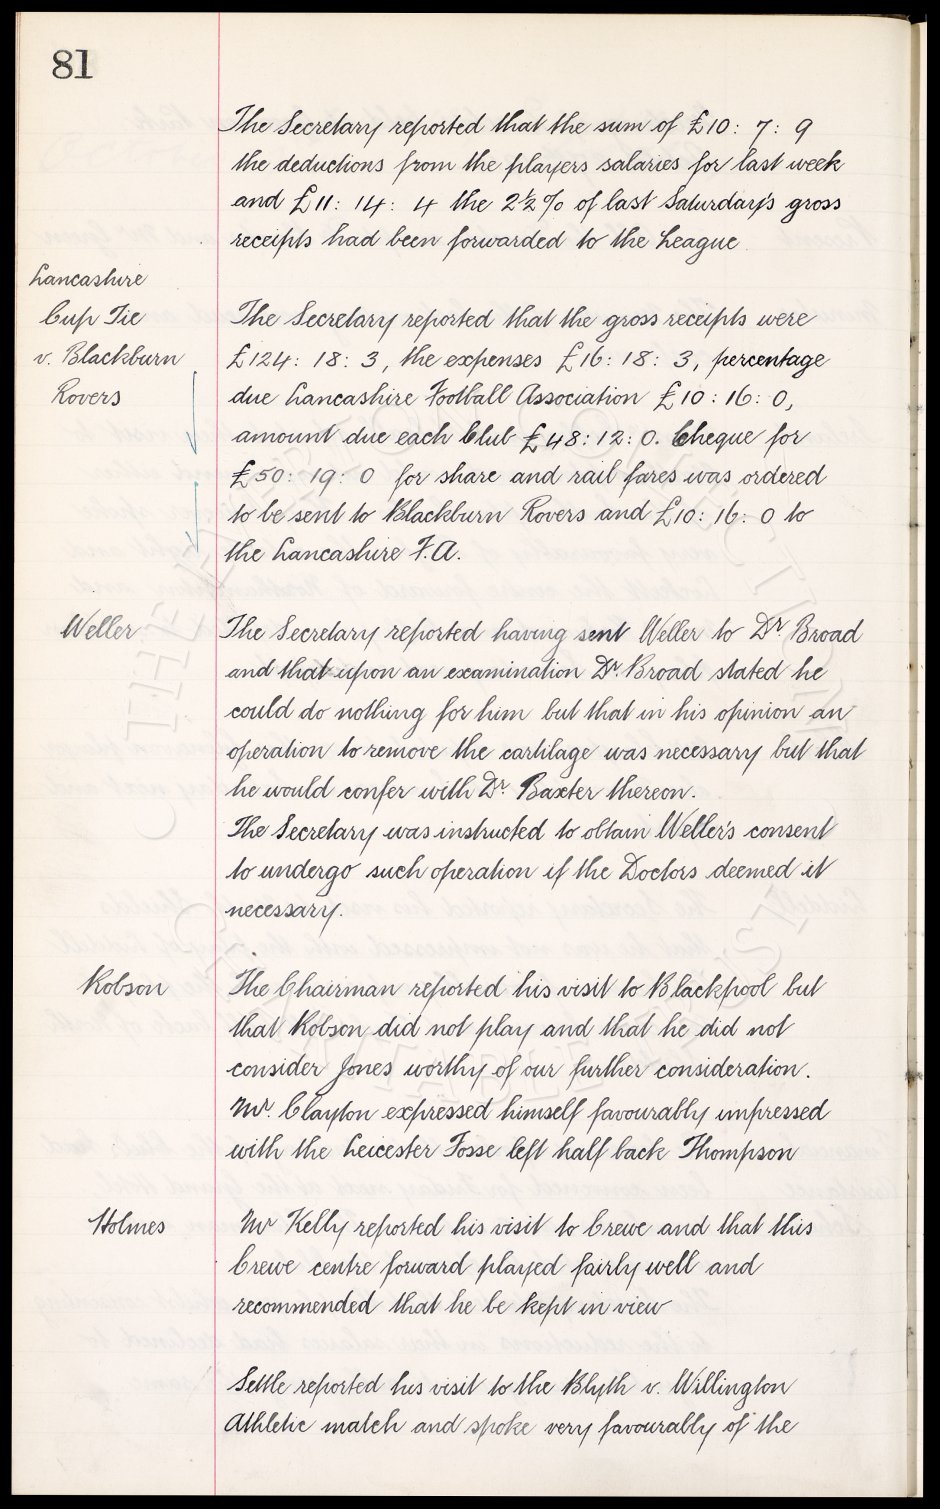 81
The Secretary reported that the sum of £10: 7: 9
the deductions from the players salaries for last week
and £11: 14: 4 the 2½% of last Saturday's gross
receipts had been forwarded to the League
Lancashire
Cup Tie
v. Blackburn
Rovers
The Secretary reported that the gross receipts were
£124: 18: 3, the expenses £16: 18: 3, percentage
due Lancashire Football Association £10: 16: 0,
amount due each Club £48: 12: 0. Cheque for
£50: 19: 0 for share and rail fares was ordered
to be sent to Blackburn Rovers and £10: 16: 0 to
the Lancashire F.A.
Weller
The Secretary reported having sent Weller to Dr Broad
and that upon an examination Dr. Broad stated he
could do nothing for him but that in his opinion an
operation to remove the cartilage was necessary but that
he would confer with Dr Baxter thereon.
The Secretary was instructed to obtain Weller's consent
to undergo such operation if the Doctors deemed it
necessary.
Robson
The Chairman reported his visit to Blackpool but
that Robson did not play and that he did not
consider Jones worthy of our further consideration.
Mr. Clayton expressed himself favourably impressed
with the Leicester Fosse left half back Thompson
Holmes
Mr Kelly reported his visit to Crewe and that this
Crewe centre forward played fairly well and
recommended that he be kept in view
Settle reported his visit to the Blyth v. Willington
Athletic match and spoke very favourably of the